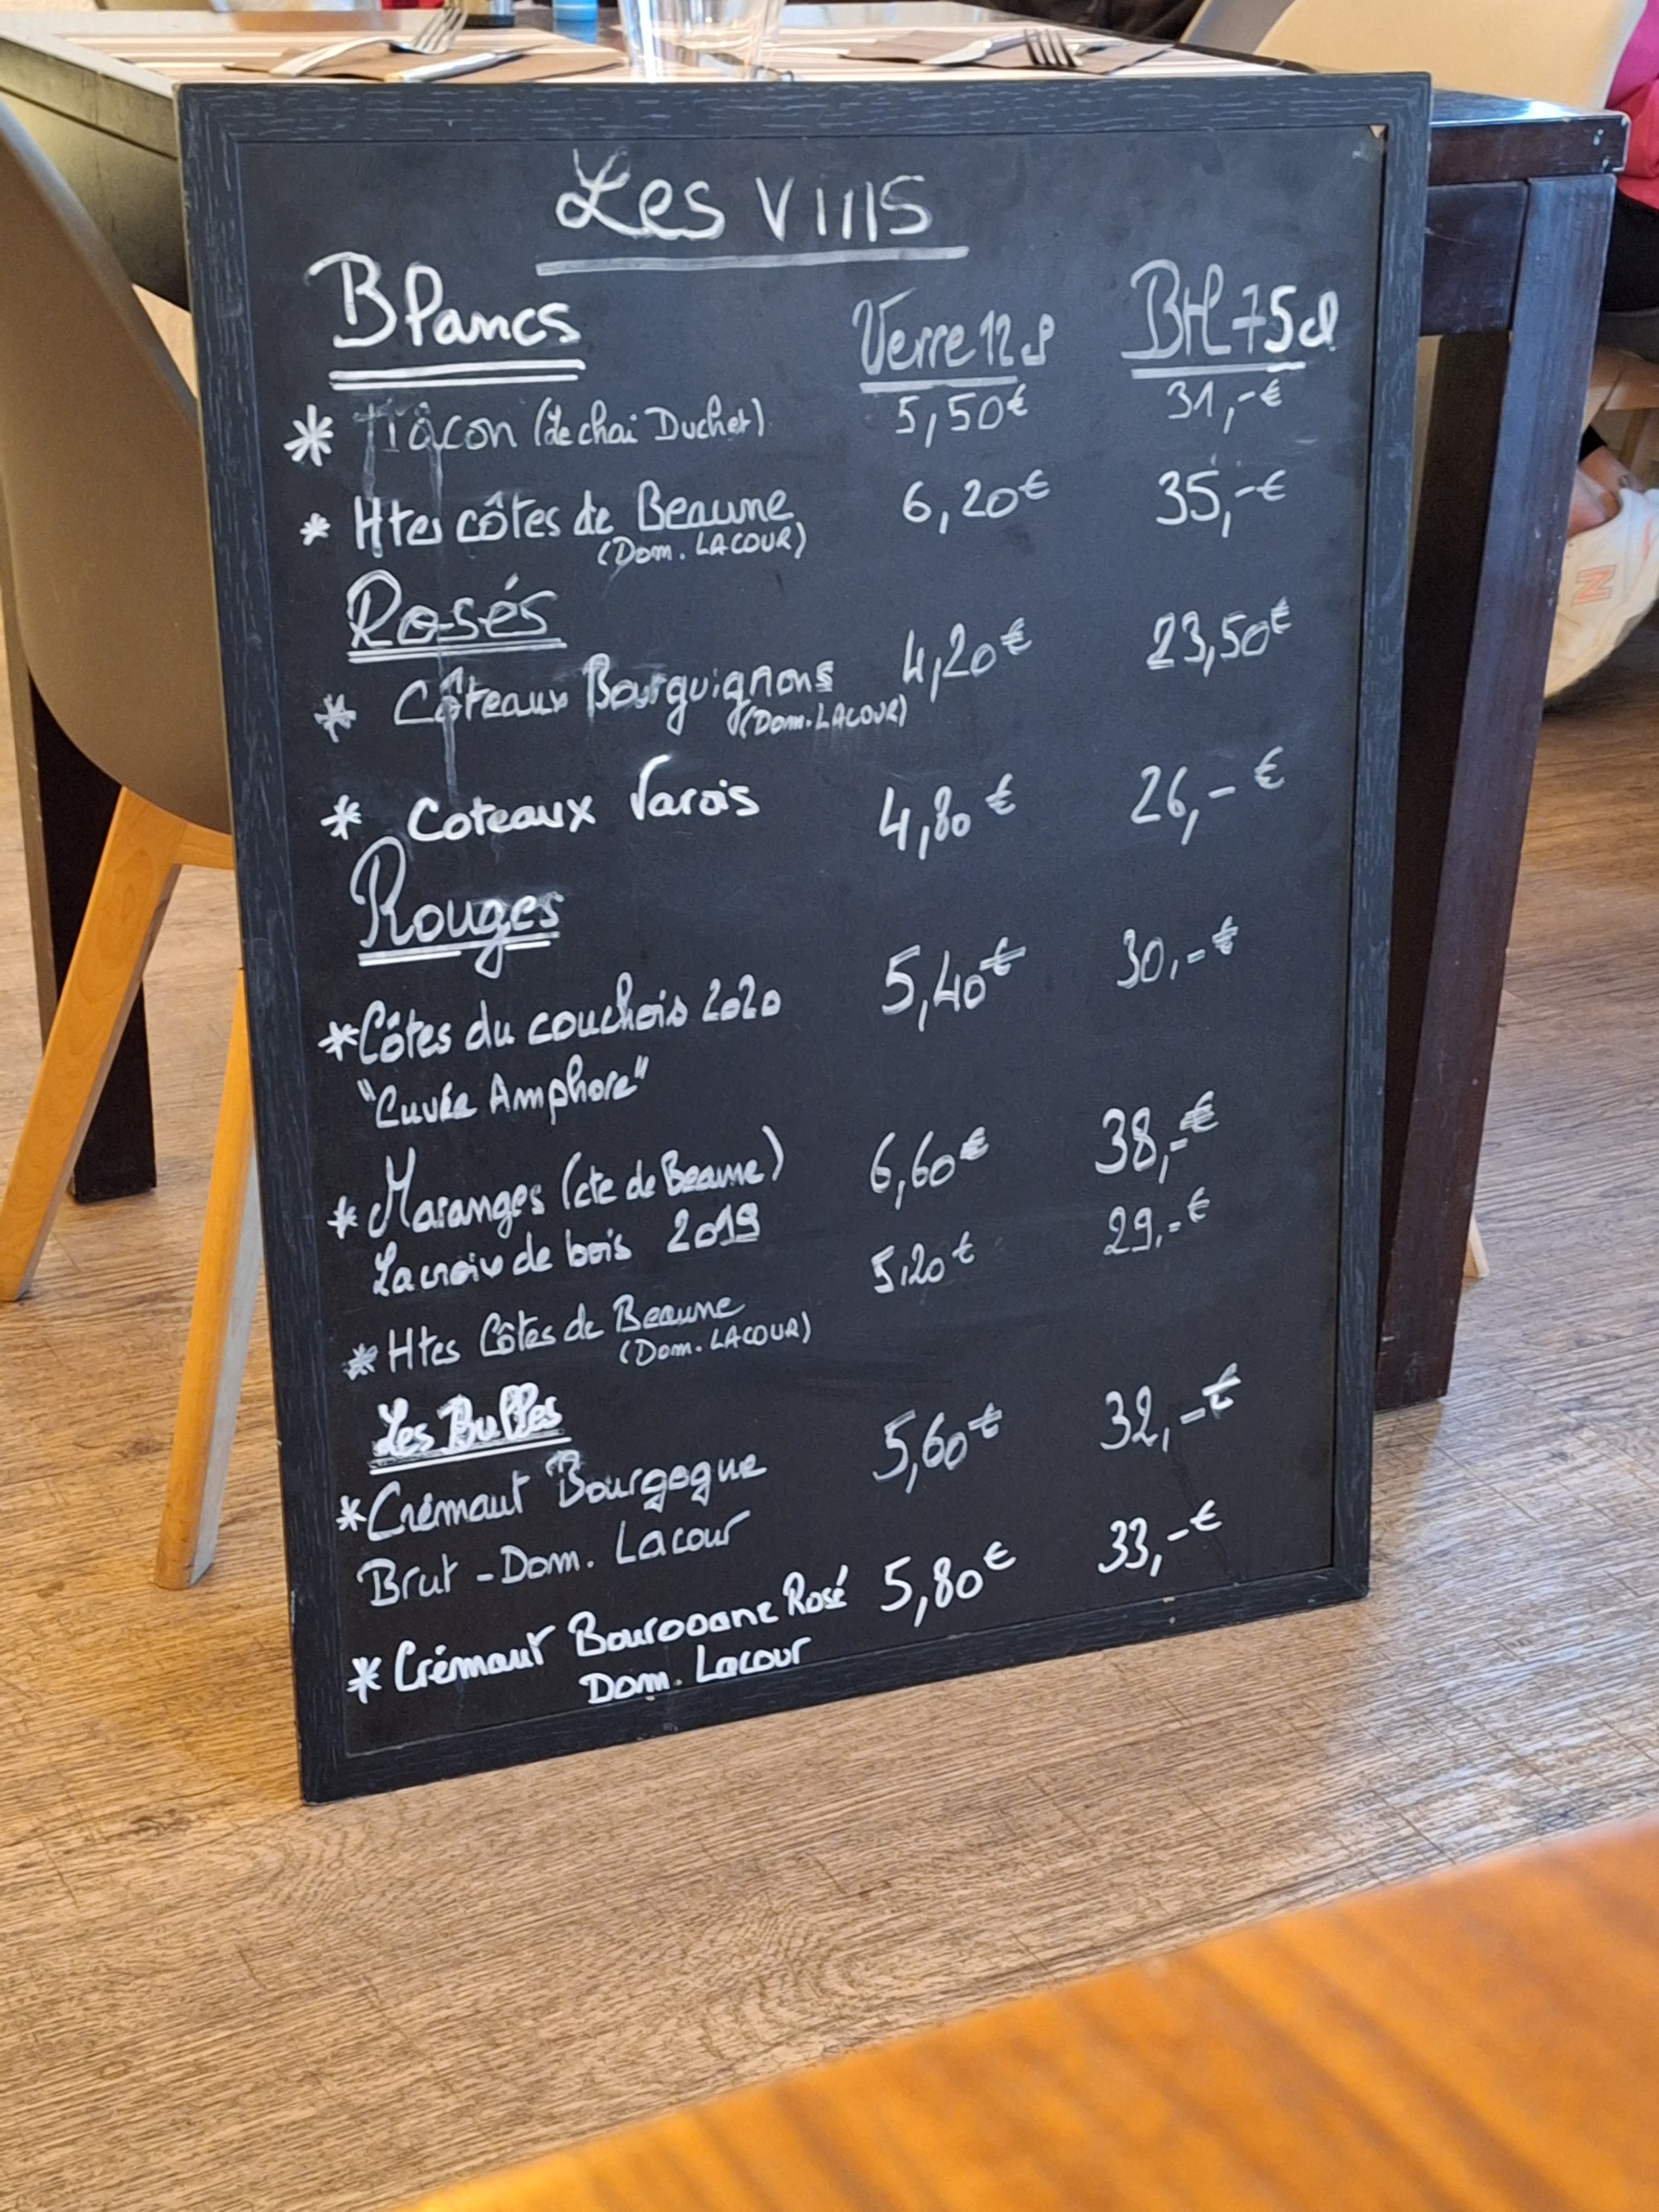 Les VINS
Blancs Verre 12cl Btl 75cl
* Mâcon (Le chai Duchet) 5,50€ 31,-€
* Htes côtes de Beaune 6,20€ 35,-€
(Dom. LACOUR)
Rosés
* Côteaux Bourguignons 4,20€ 23,50€
(Dom. LACOUR)
* Coteaux Varois 4,80€ 26,-€
Rouges
* Côtes du couchois 2020 5,40€ 30,-€
"Cuvée Amphore"
* Maranges (cte de Beaune) 6,60€ 38,-€
La croix de bois 2019
* Htes Côtes de Beaune 5,20€ 29,-€
(Dom. LACOUR)
Les Bulles
* Crémant Bourgogne 5,60€ 32,-€
Brut - Dom. Lacour
* Crémant Bourgogne Rosé 5,80€ 33,-€
Dom. Lacour
N